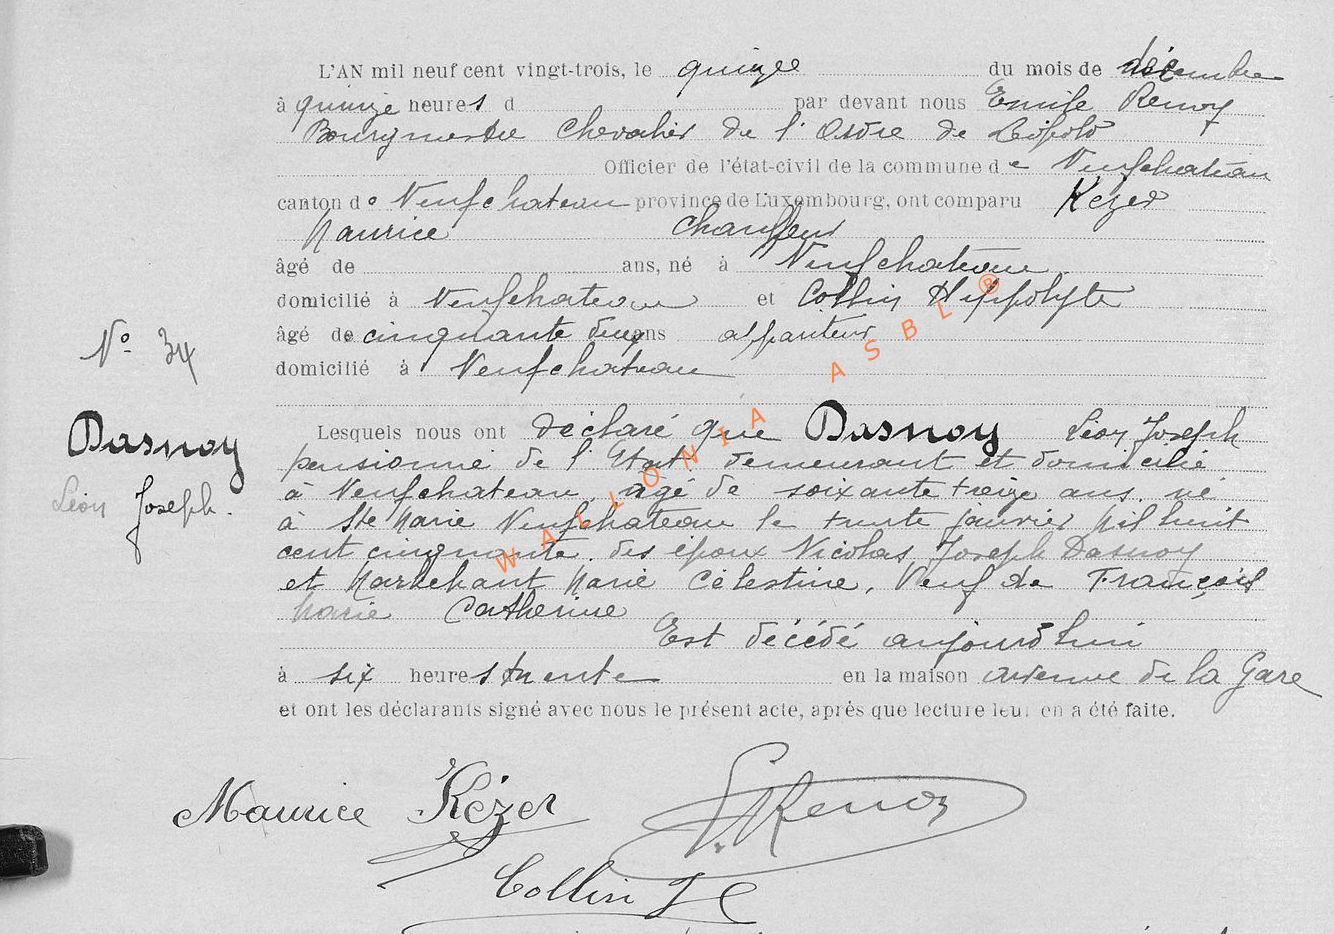 L'AN mil neuf cent vingt-trois, le quinze du mois de décembre
à quinze heures d par devant nous Emile Renoy
Bourgmestre Chevalier de l'Ordre de Léopold
Officier de l'état-civil de la commune de Neufchateau
canton de Neufchateau province de Luxembourg, ont comparu Kézer
Maurice Chauffeur
âgé de ans, né à Neufchateau
domicilié à Neufchateau et Collin Hippolyte
âgé de cinquante deux ans appariteur
domicilié à Neufchateau
N° 34
Lesquels nous ont déclaré que Dasnoy Léon Joseph
Dasnoy
Léon Joseph.
pensionné de l'Etat demeurant et domicilié
à Neufchateau, agé de soixante treize ans, né
à Ste Marie Neufchateau le trente janvier mil huit
cent cinquante, des époux Nicolas Joseph Dasnoy
et Marie Célestine, Veuf de François
Marie Catherine
Est décédé aujourd'hui
à six heures trente en la maison avenue de la Gare
et ont les déclarants signé avec nous le présent acte, après que lecture leur en a été faite.
Maurice Kézer
E. Renoy
Collin
WALLONIA ASBL ®